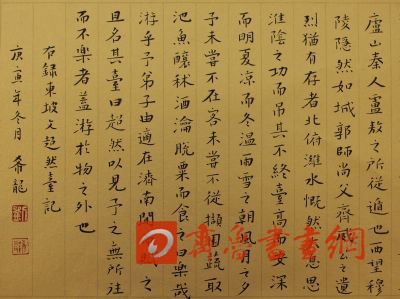 廬山秦人盧敖之所從遁也西望穆
陵隱然如城郭師尚父齊威公之遺
烈猶有存者北俯濰水慨然太息思
淮陰之功而吊其不終臺高而安深
而明夏凉而冬溫雨雪之朝風月之夕
予未嘗不在客未嘗不從擷園蔬取
池魚釀秫酒瀹脫粟而食之曰樂哉
游乎予弟子由適在濟南聞而賦之
且名其臺曰超然以見予之無所往
而不樂者蓋游於物之外也
右錄東坡文超然臺記
庚寅年冬月 希龍
齊魯書畫網